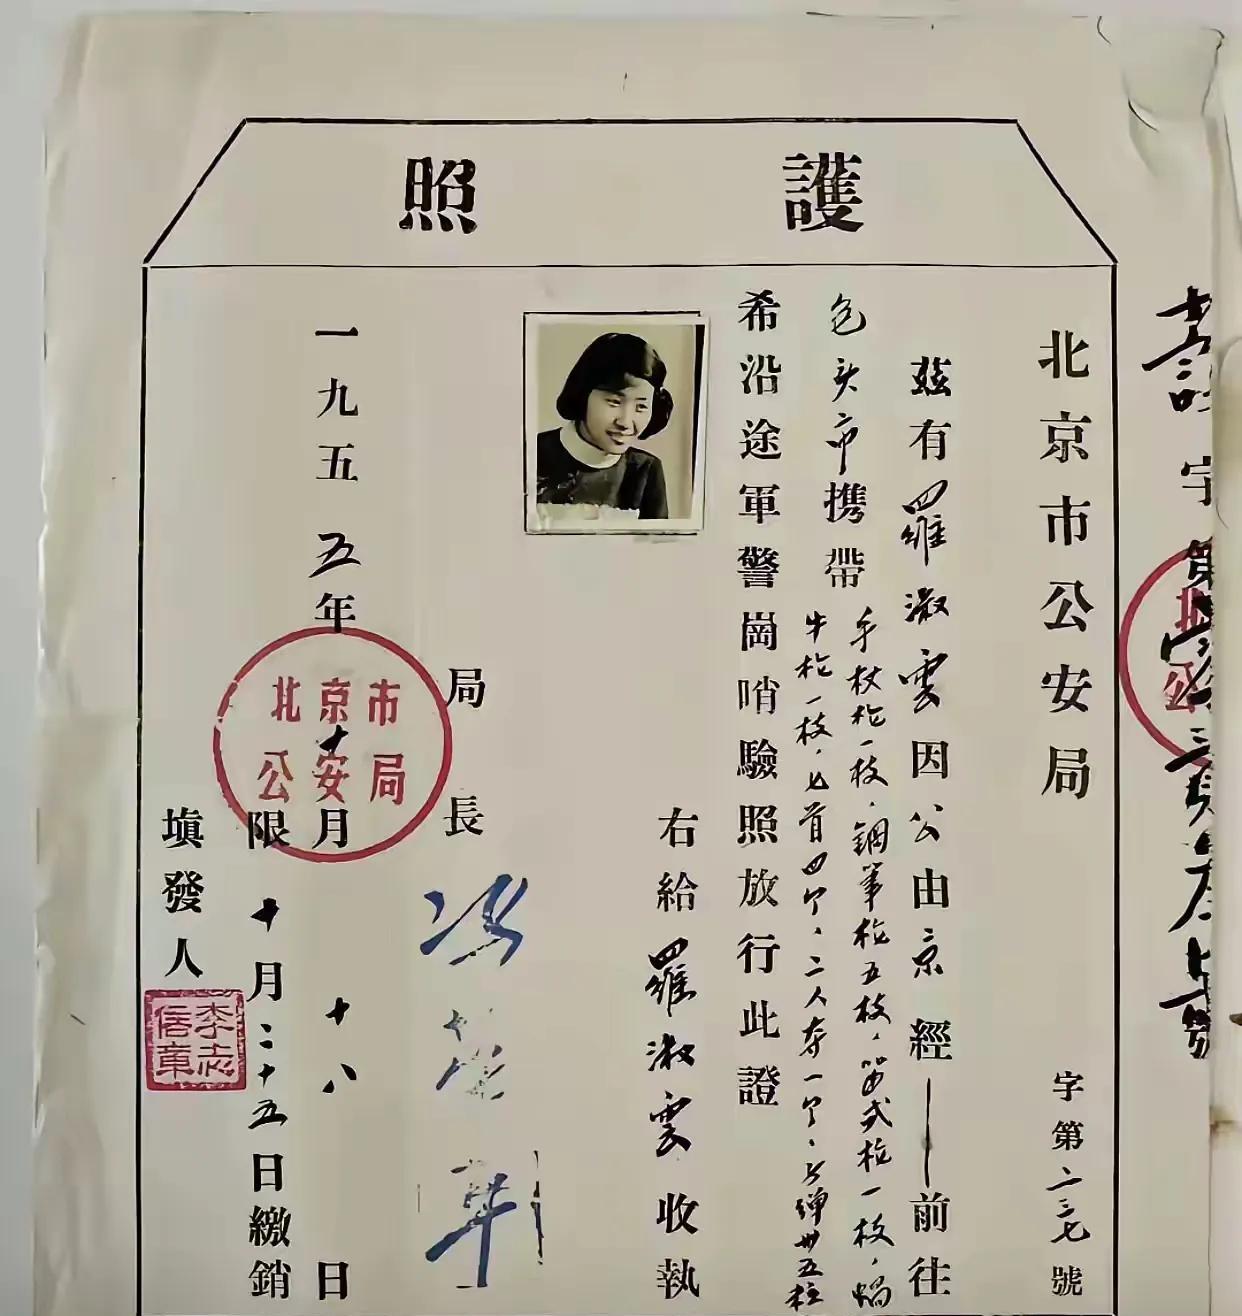 護照
北京市公安局
字第二三七號
茲有羅淑雲因公由京經一前往
包头市携帶
手杖枪一枝，鋼筆枪五枝，笛式枪一枝，蝸
牛枪一枝，匕首四个，二人夺一个，子弹卅五粒
希沿途軍警崗哨驗照放行此證
右給羅淑雲收執
局長
一九五五年十月十八日
限十月二十五日繳銷
填發人
李志信章
北京市
公安局
字第
號